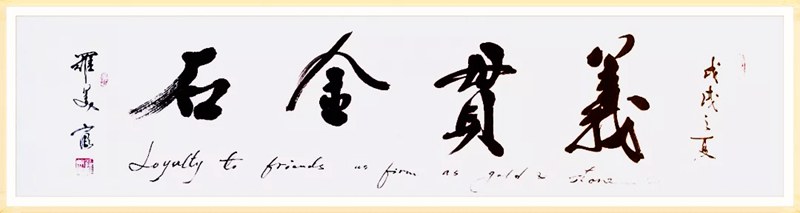 戊戌之夏
義貫金石
羅美
Loyalty to friends as firm as gold & stone